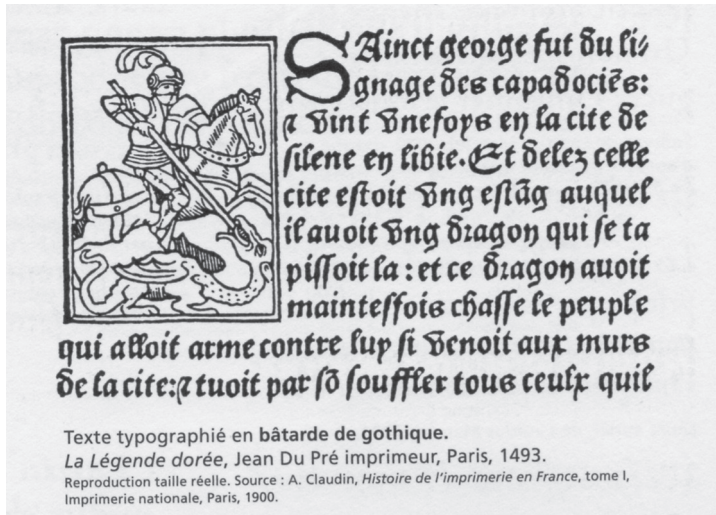 SAinct george fut du li⸗
gnage des capadociēs:
⁊ vint vnefoys en la cite de
silene en libie. Et delez celle
cite estoit vng estāg auquel
il auoit vng dragon qui se ta
pissoit la : et ce dragon auoit
mainteffois chasse le peuple
qui alloit arme contre luy si venoit aux murs
de la cite: ⁊ tuoit par sō souffler tous ceulx quil
Texte typographié en bâtarde de gothique.
La Légende dorée, Jean Du Pré imprimeur, Paris, 1493.
Reproduction taille réelle. Source : A. Claudin, Histoire de l'imprimerie en France, tome I,
Imprimerie nationale, Paris, 1900.